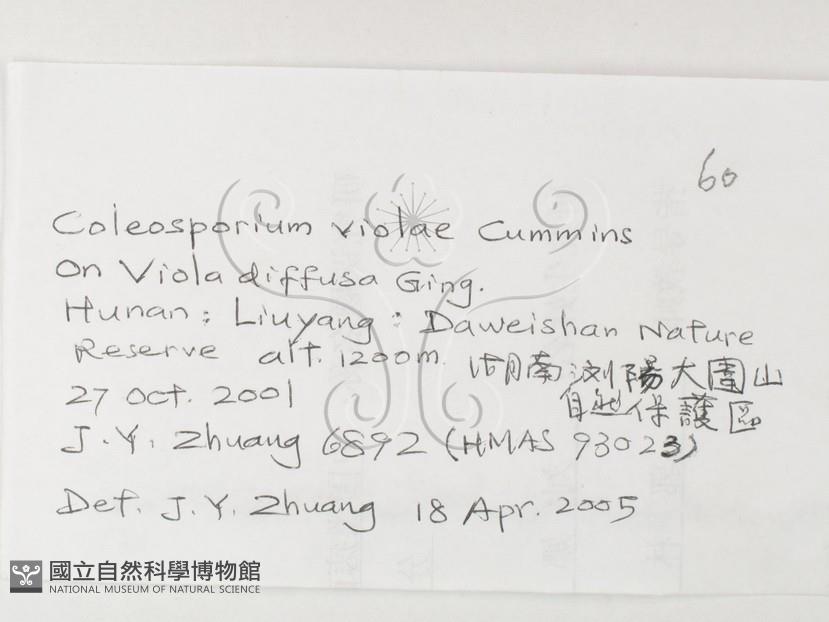 60
Coleosporium violae Cummins
On Viola diffusa Ging.
Hunan: Liuyang: Daweishan Nature
Reserve alt. 1200m. 湖南瀏陽大圍山
自然保護區
27 Oct. 2001
J.Y. Zhuang 6892 (HMAS 93023)
Det. J.Y. Zhuang 18 Apr. 2005
國立自然科學博物館
NATIONAL MUSEUM OF NATURAL SCIENCE